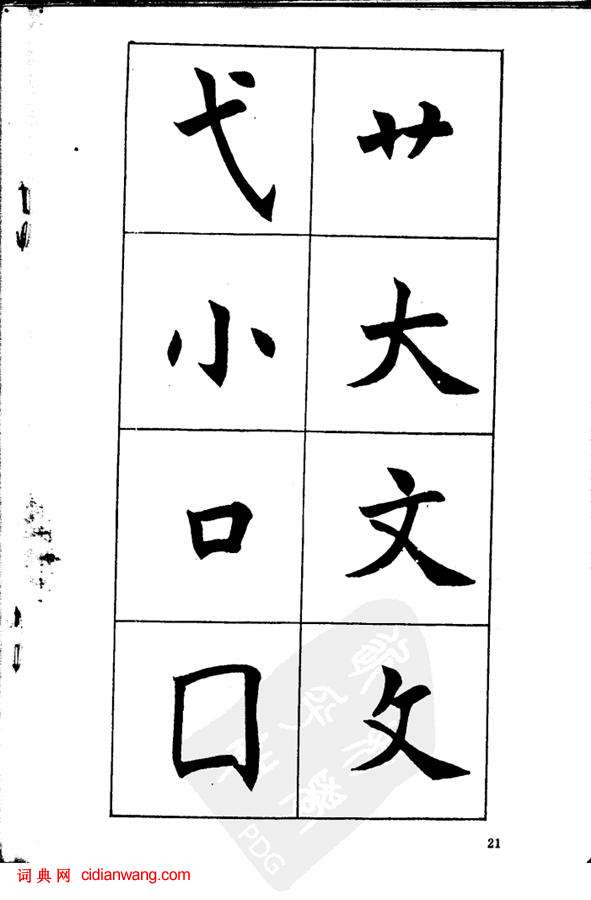 弋 艹
小 大
口 文
囗 攵
21
词典网 cidianwang.com
PDG